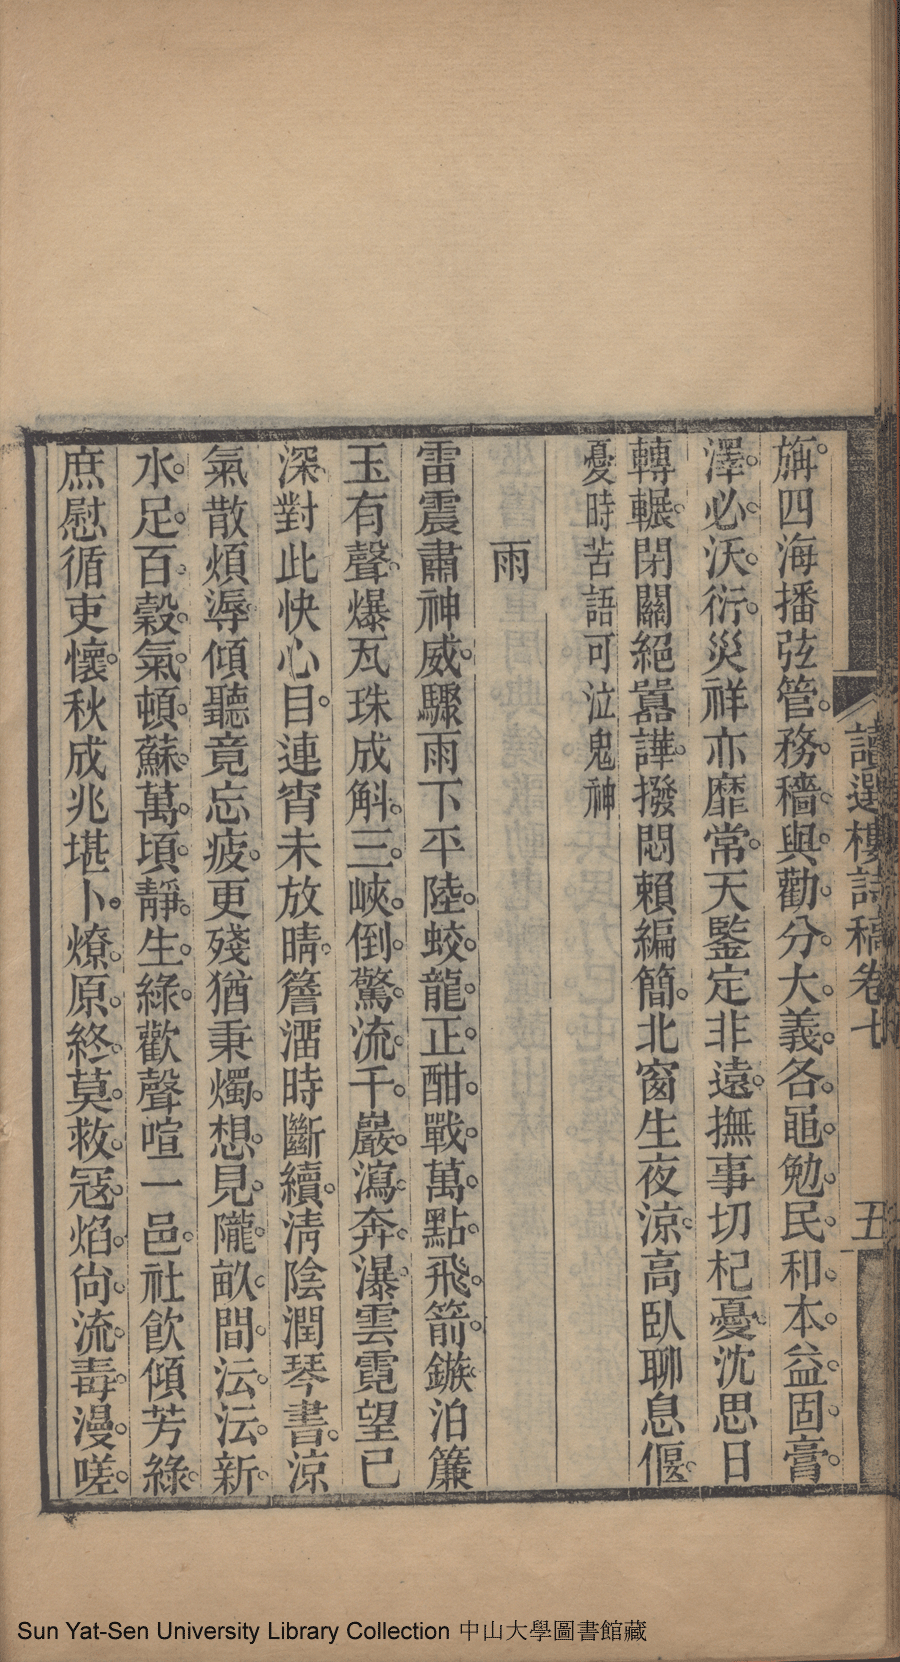 讀選樓詩稿卷七
五
旃四海播弦管務穡與勸分大義各黽勉民和本益固膏
澤必沃衍災祥亦靡常天鑒定非遠撫事切杞憂沈思日
轉輾閉關絕囂譁撥悶賴編簡北窗生夜涼高臥聊息偃
憂時苦語可泣鬼神
雨
雷震肅神威驟雨下平陸蛟龍正酣戰萬點飛箭鏃泊簾
玉有聲爆瓦珠成斛三峽倒驚流千巖瀉奔瀑雲霓望已
深對此快心目連宵未放晴簷溜時斷續淸陰潤琴書涼
氣散煩溽傾聽竟忘疲更殘猶秉燭想見隴畝間沄沄新
水足百穀氣頓蘇萬頃靜生綠歡聲喧一邑社飮傾芳綠
庶慰循吏懷秋成兆堪卜燎原終莫救寇焰尙流毒漫嗟
Sun Yat-Sen University Library Collection 中山大學圖書館藏